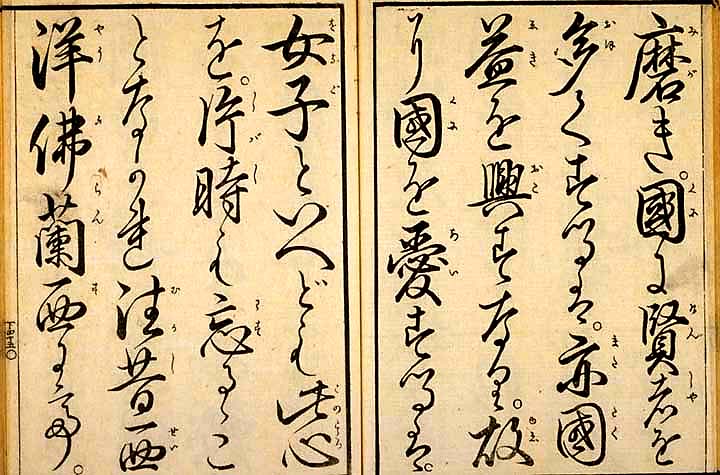 磨き國に賢者を
多くするは。亦國
益を興すなり。故
に國を愛するは。
女子といへども此心
を。片時も忘るゝこ
となかれ往昔西
洋佛蘭西に